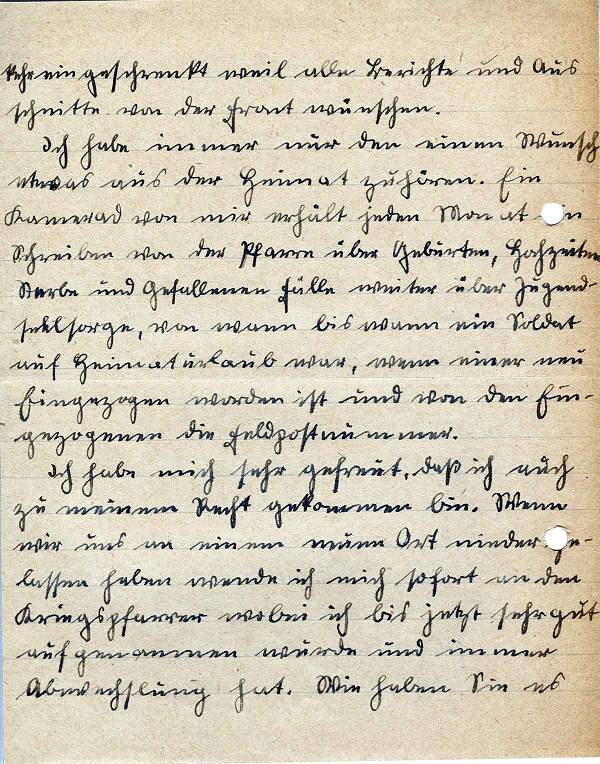 kehr eingeschrenkt weil alle Berichte und Aus
schnitte von der Front wünschen.
Ich habe immer nur den einen Wunsch
etwas aus der Heimat zuhören. Ein
Kamerad von mir erhält jeden Monat ein
Schreiben von der Pfarre über Geburten, Hochzeiten
Sterbe und Gefallenen Fälle weiter über Jugend-
seelsorge, von wann bis wann ein Soldat
auf Heimaturlaub war, wenn einer neu
Eingezogen worden ist und von den Ein-
gezogenen die Feldpostnummer.
Ich habe mich sehr gefreut, daß ich auch
zu meinem Recht gekommen bin. Wenn
wir uns an einem neuen Ort niederge-
lassen haben wende ich mich sofort an den
Kriegspfarrer wobei ich bis jetzt sehr gut
aufgenommen wurde und immer
Abwechslung hat. Wie haben Sie es